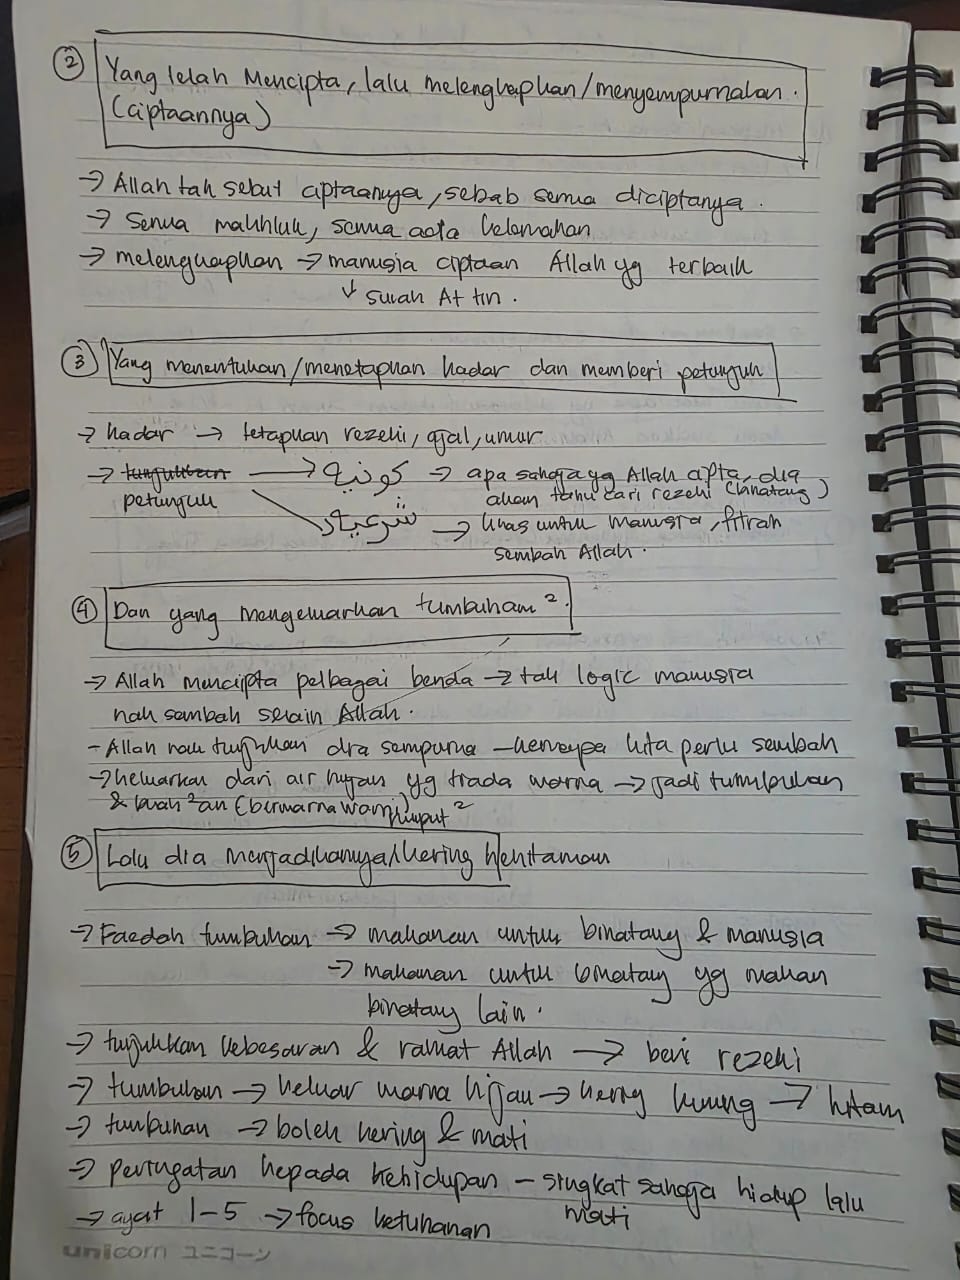 ② Yang telah Mencipta, lalu melengkapkan/menyempurnakan.
(ciptaannya)
→ Allah tak sebut ciptaanya, sebab semua diciptanya.
→ Semua makhluk, semua ada kelemahan
→ melengkapkan → manusia ciptaan Allah yg terbaik
↓ surah At tin.
③ Yang menentukan/menetapkan kadar dan memberi petunjuk
→ kadar → tetapkan rezeki, ajal, umur
→ tunjukkan → كونية → apa sahaja yg Allah cipta, dia
petunjuk akan tahu cari rezeki (binatang)
شرعية → khas untuk manusia, fitrah
sembah Allah.
④ Dan yang mengeluarkan tumbuhan².
→ Allah mencipta pelbagai benda → tak logic manusia
nak sembah selain Allah.
- Allah nak tunjukkan dia sempurna – kenapa kita perlu sembah
→ keluarkan dari air hujan yg tiada warna → jadi tumbuhan
& buah²an (berwarna warni)
rumput²
⑤ Lalu dia menjadikannya kering kehitaman
→ Faedah tumbuhan → makanan untuk binatang & manusia
→ makanan untuk binatang yg makan
binatang lain.
→ tunjukkan kebesaran & rahmat Allah → beri rezeki
→ tumbuhan → keluar warna hijau → kering kuning → hitam
→ tumbuhan → boleh kering & mati
→ peringatan kepada kehidupan – singkat sahaja hidup lalu
mati
→ ayat 1-5 → focus ketuhanan
unicorn ユニコーン